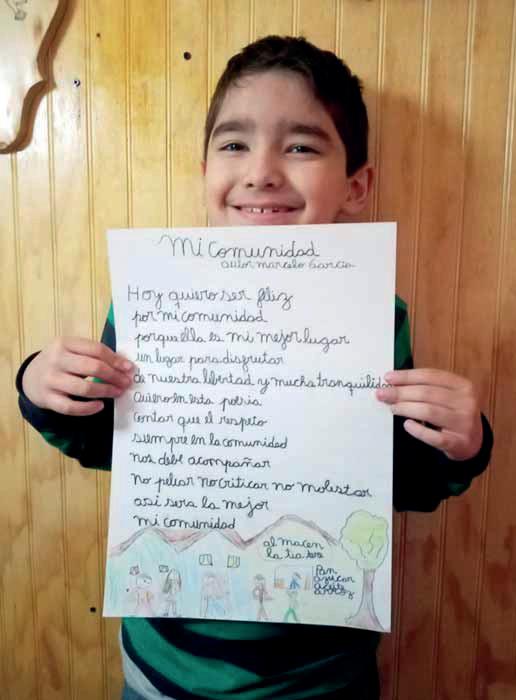 Mi Comunidad
autor marcelo García
Hoy quiero ser feliz
por mi comunidad
porque ella es mi mejor lugar
un lugar para disfrutar
de nuestra libertad y mucha tranquilidad
Quiero en esta poesia
contar que el respeto
siempre en la comunidad
nos debe acompañar
no pelear no criticar no molestar
asi sera la mejor
mi comunidad
al macen
la tia
Pan
azucar
aceite
arroz